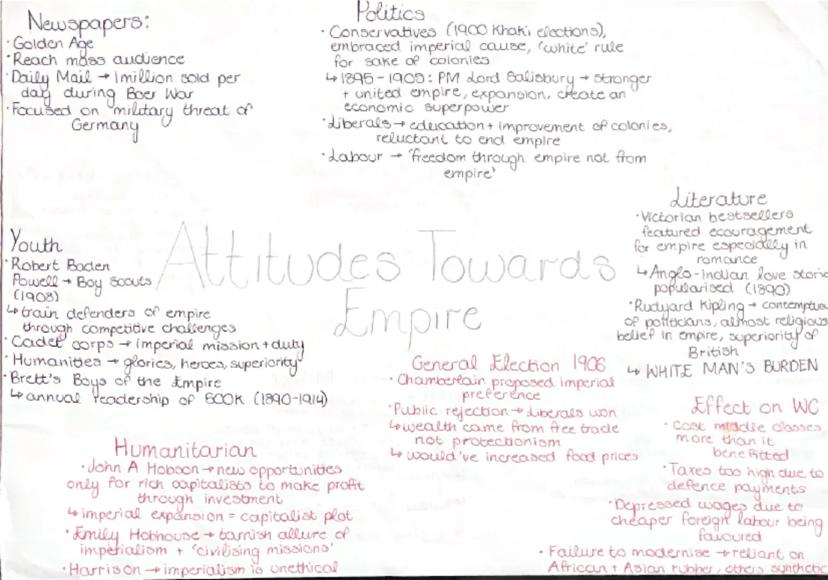 Newspapers:
• Golden Age
• Reach mass audience
• Daily Mail → 1 million sold per
day during Boer War
• Focused on 'military threat of
Germany
Politics
• Conservatives (1900 Khaki elections),
embraced imperial cause, 'white' rule
for sake of colonies
↳ 1895-1905: PM Lord Salisbury → stronger
+ united empire, expansion, create an
economic superpower
• Liberals → education + improvement of colonies,
reluctant to end empire
• Labour → 'freedom through empire not from
empire'
Literature
• Victorian bestsellers
featured ecouragement
for empire especially in
romance
↳ Anglo-Indian love storie
popularised (1890)
• Rudyard Kipling → contemptuo
of politicians, almost religious
belief in empire, superiority of
British
↳ WHITE MAN'S BURDEN
Youth
• Robert Baden
Powell → Boy Scouts
(1908)
↳ train defenders of empire
through competitive challenges
• Cadet corps → imperial mission + duty
• Humanities → glories, heroes, superiority
• Brett's Boys of the Empire
↳ annual readership of 800K (1890-1914)
Attitudes Towards
Empire
General Election 1906
• Chamberlain proposed imperial
preference
• Public rejection → Liberals won
↳ wealth came from free trade
not protectionism
↳ would've increased food prices
Effect on WC
• Cost middle classes
more than it
benefitted
• Taxes too high due to
defence payments
• Depressed wages due to
cheaper foreign labour being
favoured
• Failure to modernise → reliant on
African + Asian rubber, others synthetic
Humanitarian
• John A Hobson → new opportunities
only for rich capitalists to make profit
through investment
↳ imperial expansion = capitalist plot
• Emily Hobhouse → tarnish allure of
imperialism + 'civilising missions'
• Harrison → imperialism is unethical